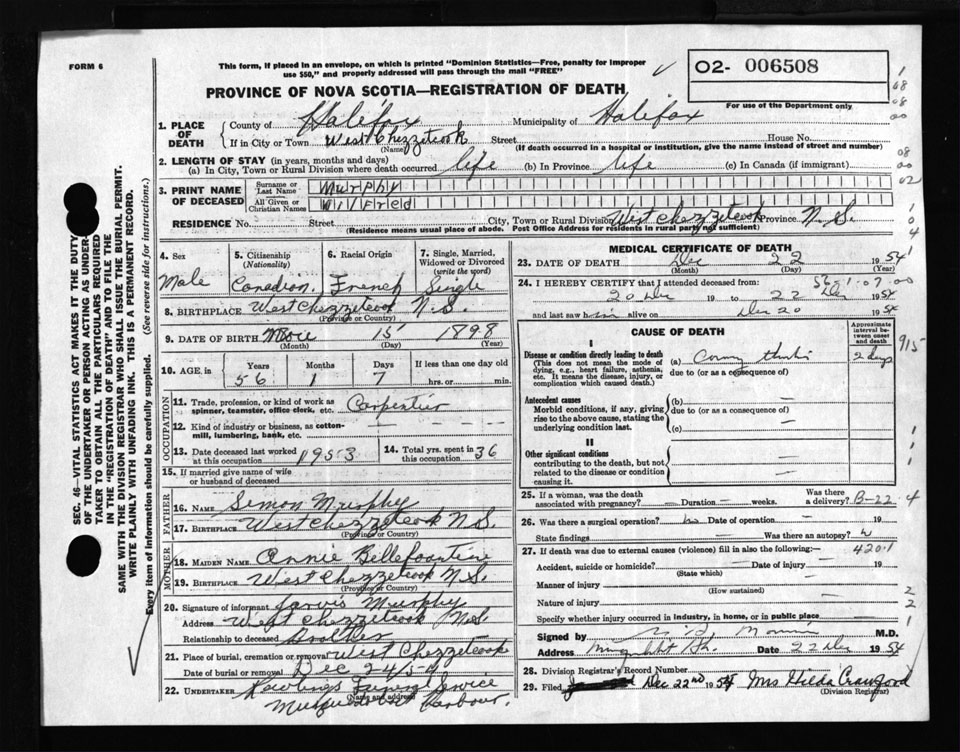 FORM 6
This form, if placed in an envelope, on which is printed "Dominion Statistics—Free, penalty for improper
use $50," and properly addressed will pass through the mail "FREE"
O2- 006508
For use of the Department only
PROVINCE OF NOVA SCOTIA—REGISTRATION OF DEATH
1. PLACE OF DEATH
County of Halifax Municipality of Halifax
If in City or Town West Chezzetcook Street House No.
(Name) (If death occurred in a hospital or institution, give the name instead of street and number)
2. LENGTH OF STAY (in years, months and days)
(a) In City, Town or Rural Division where death occurred life (b) In Province life (c) In Canada (if immigrant)
3. PRINT NAME OF DECEASED
Surname or Last Name Murphy
All Given or Christian Names Wilfred
RESIDENCE No. Street City, Town or Rural Division West Chezzetcook Province N.S.
(Residence means usual place of abode. Post Office Address for residents in rural parts not sufficient)
4. Sex Male
5. Citizenship (Nationality) Canadian
6. Racial Origin French
7. Single, Married, Widowed or Divorced (write the word) Single
8. BIRTHPLACE West Chezzetcook N.S.
(Province or Country)
9. DATE OF BIRTH 15 1898
(Month) (Day) (Year)
10. AGE in Years Months Days If less than one day old
56 1 7 hrs. or min.
OCCUPATION
11. Trade, profession or kind of work as spinner, teamster, office clerk, etc. Carpentier
12. Kind of industry or business, as cotton-mill, lumbering, bank, etc.
13. Date deceased last worked at this occupation 1953
14. Total yrs. spent in this occupation 36
15. If married give name of wife or husband of deceased
FATHER
16. NAME Simon Murphy
17. BIRTHPLACE West Chezzetcook N.S.
(Province or Country)
MOTHER
18. MAIDEN NAME Annie Bellefontaine
19. BIRTHPLACE West Chezzetcook N.S.
(Province or Country)
20. Signature of informant Jarvis Murphy
Address West Chezzetcook N.S.
Relationship to deceased brother
21. Place of burial, cremation or removal West Chezzetcook
Date of burial or removal Dec 24/54
22. UNDERTAKER Rawlings Funeral Service
(Name and address)
Musquodoboit Harbour.
MEDICAL CERTIFICATE OF DEATH
23. DATE OF DEATH Dec 22 1954
(Month) (Day) (Year)
24. I HEREBY CERTIFY that I attended deceased from:
20 Dec 19 to 22 Dec 1954
and last saw him alive on Dec 20 1954
CAUSE OF DEATH
Approximate interval between onset and death
I
Disease or condition directly leading to death (a) 2 days
(This does not mean the mode of dying, e.g., heart failure, asthenia, etc. It means the disease, injury, or complication which caused death.)
due to (or as a consequence of)
Antecedent causes (b) —
Morbid conditions, if any, giving rise to the above cause, stating the underlying condition last.
due to (or as a consequence of)
(c) —
II
Other significant conditions
contributing to the death, but not related to the disease or condition causing it.
25. If a woman, was the death associated with pregnancy? — Duration — weeks. Was there a delivery? B-22
26. Was there a surgical operation? no Date of operation — 19
State findings — Was there an autopsy?
27. If death was due to external causes (violence) fill in also the following:— 420.1
Accident, suicide or homicide? Date of injury 19
(State which)
Manner of injury
(How sustained)
Nature of injury
Specify whether injury occurred in industry, in home, or in public place
Signed by M.D.
Address Date 22 Dec 1954
28. Division Registrar's Record Number
29. Filed Dec 22nd 1954 Mrs Hilda Crawford
(Division Registrar)
SEC. 46—VITAL STATISTICS ACT MAKES IT THE DUTY
OF THE UNDERTAKER OR PERSON ACTING AS UNDER-
TAKER TO OBTAIN ALL THE PARTICULARS REQUIRED
IN THE "REGISTRATION OF DEATH" AND TO FILE THE
SAME WITH THE DIVISION REGISTRAR WHO SHALL ISSUE THE BURIAL PERMIT.
WRITE PLAINLY WITH UNFADING INK. THIS IS A PERMANENT RECORD.
Every item of information should be carefully supplied. (See reverse side for instructions.)